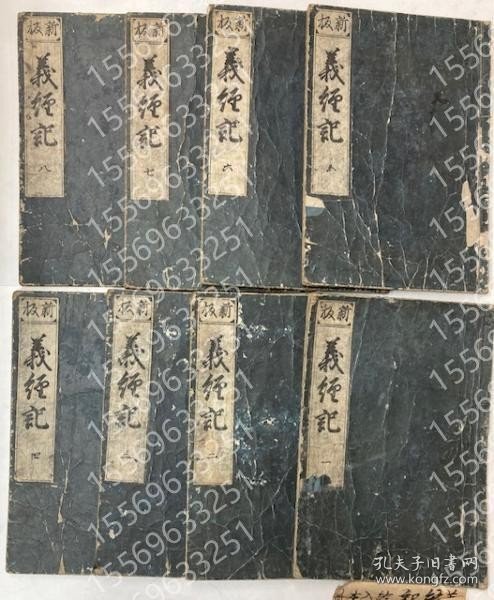 新板
義經記
八
新板
義經記
七
新板
義經記
六
新板
義經記
五
新板
義經記
四
新板
義經記
三
新板
義經記
二
新板
義經記
一
15569633251
孔夫子旧书网
www.kongfz.com